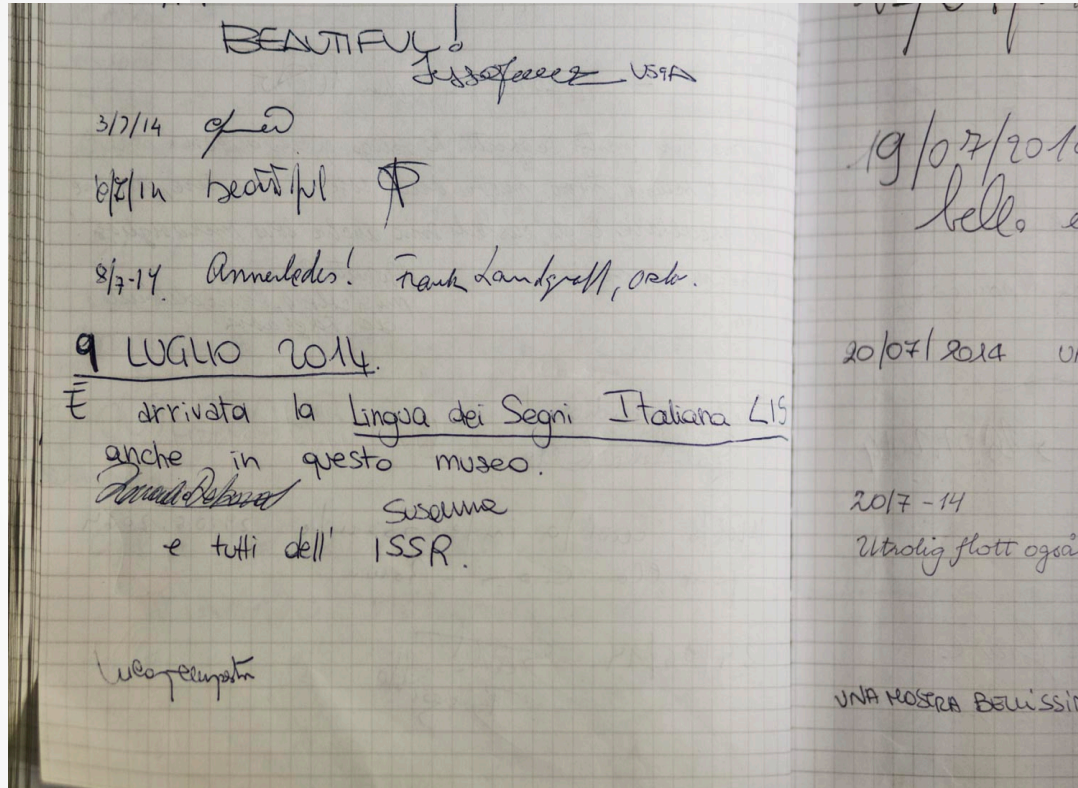 BEAUTIFUL!
USA
3/7/14
beautiful
8/7-14. Annerledes! Frank Landgraff, Oslo.
9 LUGLIO 2014.
È arrivata la Lingua dei Segni Italiana LIS
anche in questo museo.
Susanna
e tutti dell' ISSR.
19/07/201
bello e
20/07/2014
20/7-14
Utrolig flott også
UNA MOSTRA BELLISSI